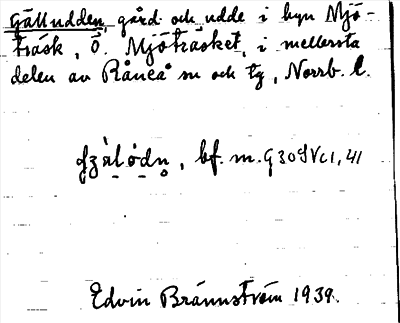 Gälludden, gård och udde i byn Mjö-
träsk, Ö. Mjöträsket, i mellersta
delen av Råneå sn och tg, Norrb. l.
bf. m.
Edvin Brännström 1939.